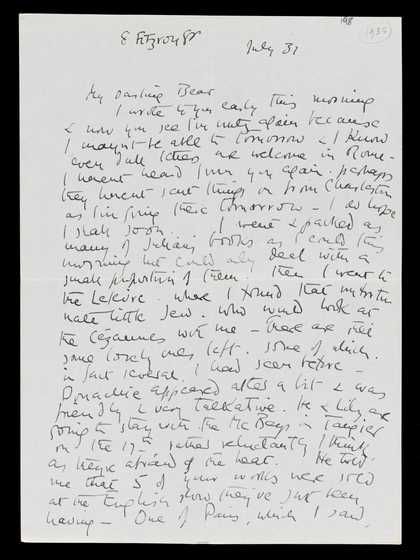 198
1935
8 Fitzroy St
July 31
My darling Bear
I wrote to you early this morning
& now you see I'm writing again because
I mayn't be able to tomorrow & I know
even dull letters are welcome in Rome.
I havent heard from you again. perhaps
they havent sent things on from Charleston
as I'm going there tomorrow – I do hope
I shall soon. I went & packed as
many of Julian's books as I could this
morning but could only deal with a
small proportion of them. Then I went to
the Lefevre. where I found that
little Jew. who would look at
the Cézannes with me – there are still
some lovely ones left. some of which.
in fact several. I had seen before –
Macdonald appeared after a bit & was
friendly & very talkative. He & are
going to stay with the McBeys in Tangier
on the 17th rather reluctantly I think,
as they're afraid of the heat. He told
me that 5 of your works were sold
at the English show they've just been
having – One of Paris, which I saw,